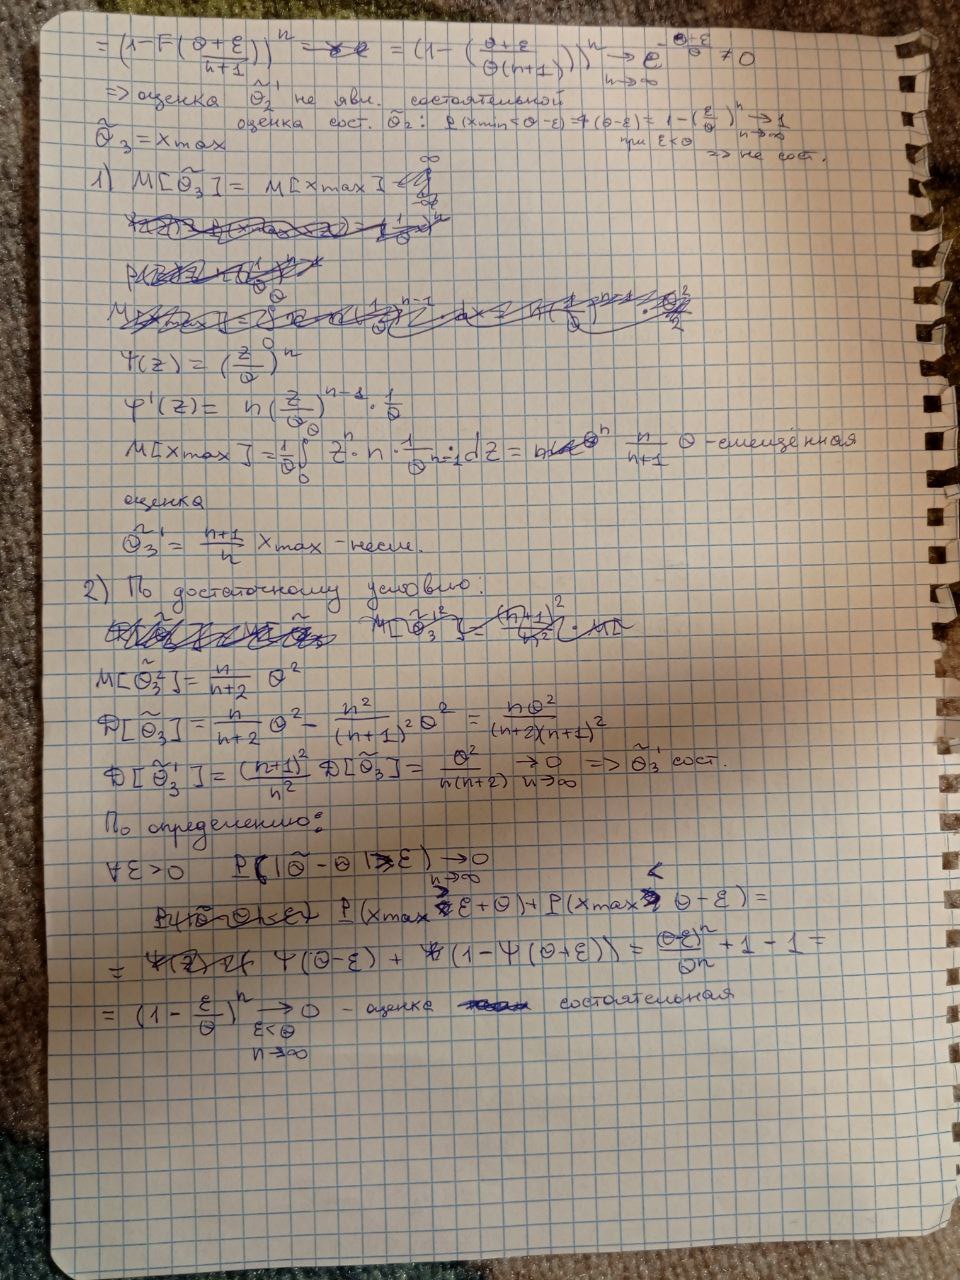 = (1 - F(θ+ε / n+1))^n = (1 - (θ+ε / θ(n+1)))^n → e^(-(θ+ε)/θ) ≠ 0
n→∞
=> оценка θ̃₂' не явл. состоятельной
оценка сост. θ̃₂: P(x min < θ-ε) = Ψ(θ-ε) = 1 - (ε/θ)^n → 1
при ε<θ n→∞
θ̃₃ = x max => не сост.
1) M[θ̃₃] = M[x max]
Ψ(z) = (z/θ)^n
φ'(z) = n(z/θ)^(n-1) · 1/θ
M[x max] = 1/θ ∫₀^θ z^n · n · 1/θ^(n-1) · dz = n/(n+1) θ - смещённая
оценка
θ̃₃' = (n+1)/n x max - несм.
2) По достаточному условию:
M[θ̃₃²] = n/(n+2) θ²
D[θ̃₃] = n/(n+2) θ² - n²/(n+1)² θ² = nθ²/((n+2)(n+1)²)
D[θ̃₃'] = (n+1)²/n² D[θ̃₃] = θ²/(n(n+2)) → 0 => θ̃₃' сост.
n→∞
По определению:
∀ε>0 P(|θ̃-θ|>ε) → 0
n→∞
P(x max > ε+θ) + P(x max < θ-ε) =
= Ψ(θ-ε) + (1 - Ψ(θ+ε)) = (θ-ε)^n/θ^n + 1 - 1 =
= (1 - ε/θ)^n → 0 - оценка состоятельная
ε<θ
n→∞